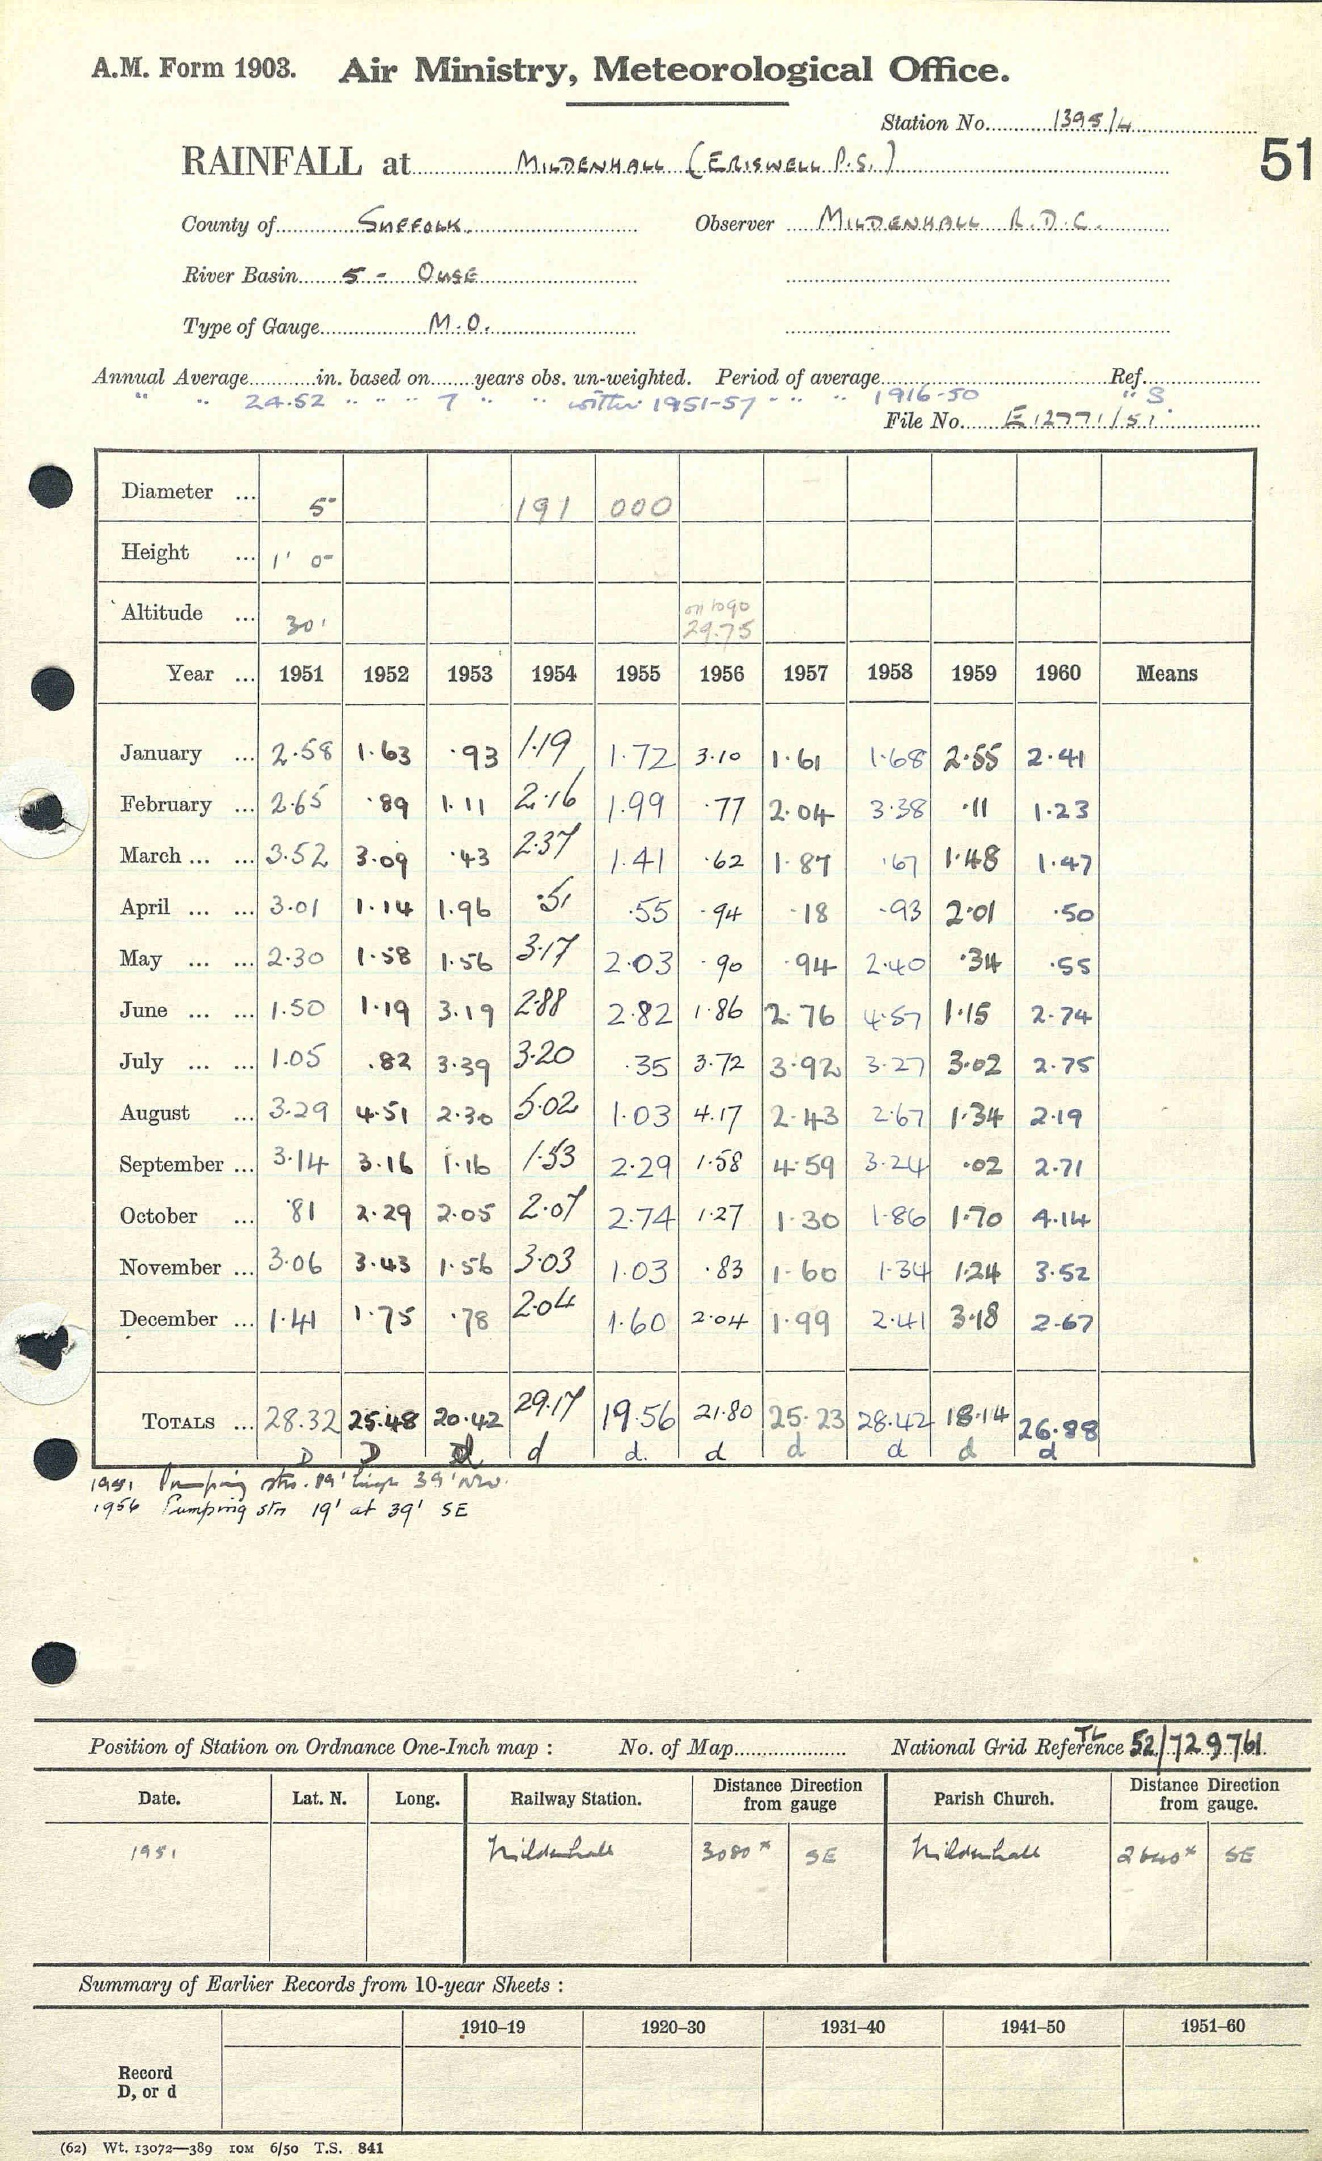 A.M. Form 1903. Air Ministry, Meteorological Office.
Station No. 1395/4
51
RAINFALL at MILDENHALL (ERISWELL P.S.)
County of SUFFOLK. Observer MILDENHALL R.D.C.
River Basin 5 - OUSE
Type of Gauge M.O.
Annual Average in. based on years obs. un-weighted. Period of average Ref.
" " 24.52 " " " 7 " " within 1951-57 " " " 1916-50 " S
File No. E12771/51
Diameter ... 5" 191 000
Height ... 1' 0"
Altitude ... 30' 29.75
Year ... 1951 1952 1953 1954 1955 1956 1957 1958 1959 1960 Means
January ... 2.58 1.63 .93 1.19 1.72 3.10 1.61 1.68 2.55 2.41
February ... 2.65 .89 1.11 2.16 1.99 .77 2.04 3.38 .11 1.23
March ... ... 3.52 3.09 .43 2.37 1.41 .62 1.87 .67 1.48 1.47
April ... ... 3.01 1.14 1.96 .51 .55 .94 .18 .93 2.01 .50
May ... ... 2.30 1.58 1.56 3.17 2.03 .90 .94 2.40 .34 .55
June ... ... 1.50 1.19 3.19 2.88 2.82 1.86 2.76 4.57 1.15 2.74
July ... ... 1.05 .82 3.39 3.20 .35 3.72 3.92 3.27 3.02 2.75
August ... 3.29 4.51 2.30 5.02 1.03 4.17 2.43 2.67 1.34 2.19
September ... 3.14 3.16 1.16 1.53 2.29 1.58 4.59 3.24 .02 2.71
October ... .81 2.29 2.05 2.07 2.74 1.27 1.30 1.86 1.70 4.14
November ... 3.06 3.43 1.56 3.03 1.03 .83 1.60 1.34 1.24 3.52
December ... 1.41 1.75 .78 2.04 1.60 2.04 1.99 2.41 3.18 2.67
TOTALS ... 28.32 25.48 20.42 29.17 19.56 21.80 25.23 28.42 18.14 26.88
D D d d d. d d d d d
1951 Pumping stn. 19' high 39' NW.
1956 Pumping stn 19' at 39' SE
Position of Station on Ordnance One-Inch map : No. of Map National Grid Reference TL 52/729761
Date. Lat. N. Long. Railway Station. Distance from gauge Direction Parish Church. Distance from gauge. Direction
1951 Mildenhall 3080x SE Mildenhall 2640x SE
Summary of Earlier Records from 10-year Sheets :
1910–19 1920–30 1931–40 1941–50 1951–60
Record
D, or d
(62) Wt. 13072—389 10M 6/50 T.S. 841